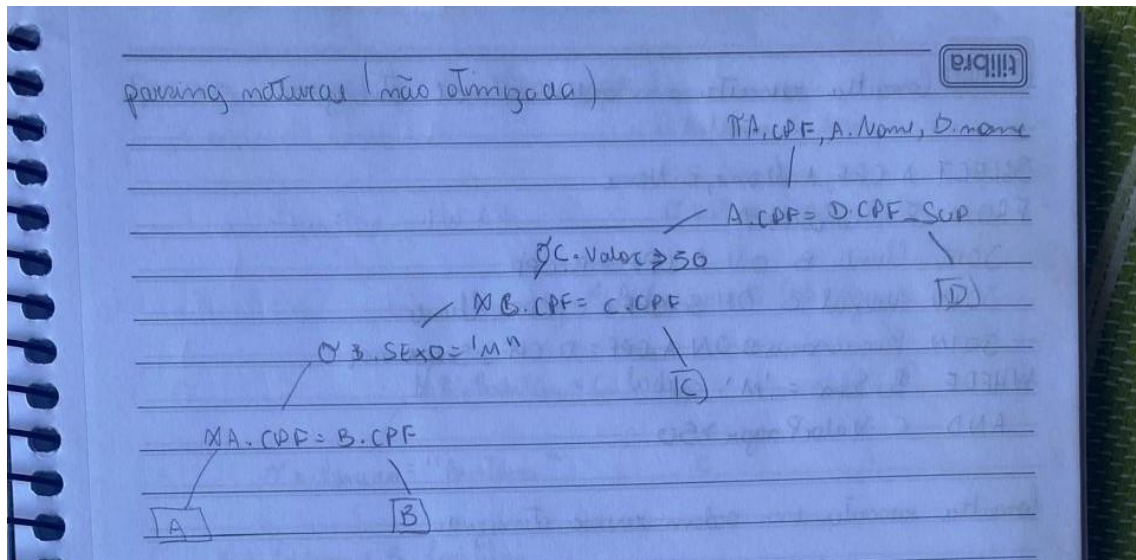 tilibra
parsing natural (não otimizada)
πA.CPF, A.Nome, D.nome
A.CPF = D.CPF_Sup
σC.Valor ≥ 50
D
⋈ B.CPF = C.CPF
σ B.SEXO = 'M"
C
⋈A.CPF = B.CPF
A
B